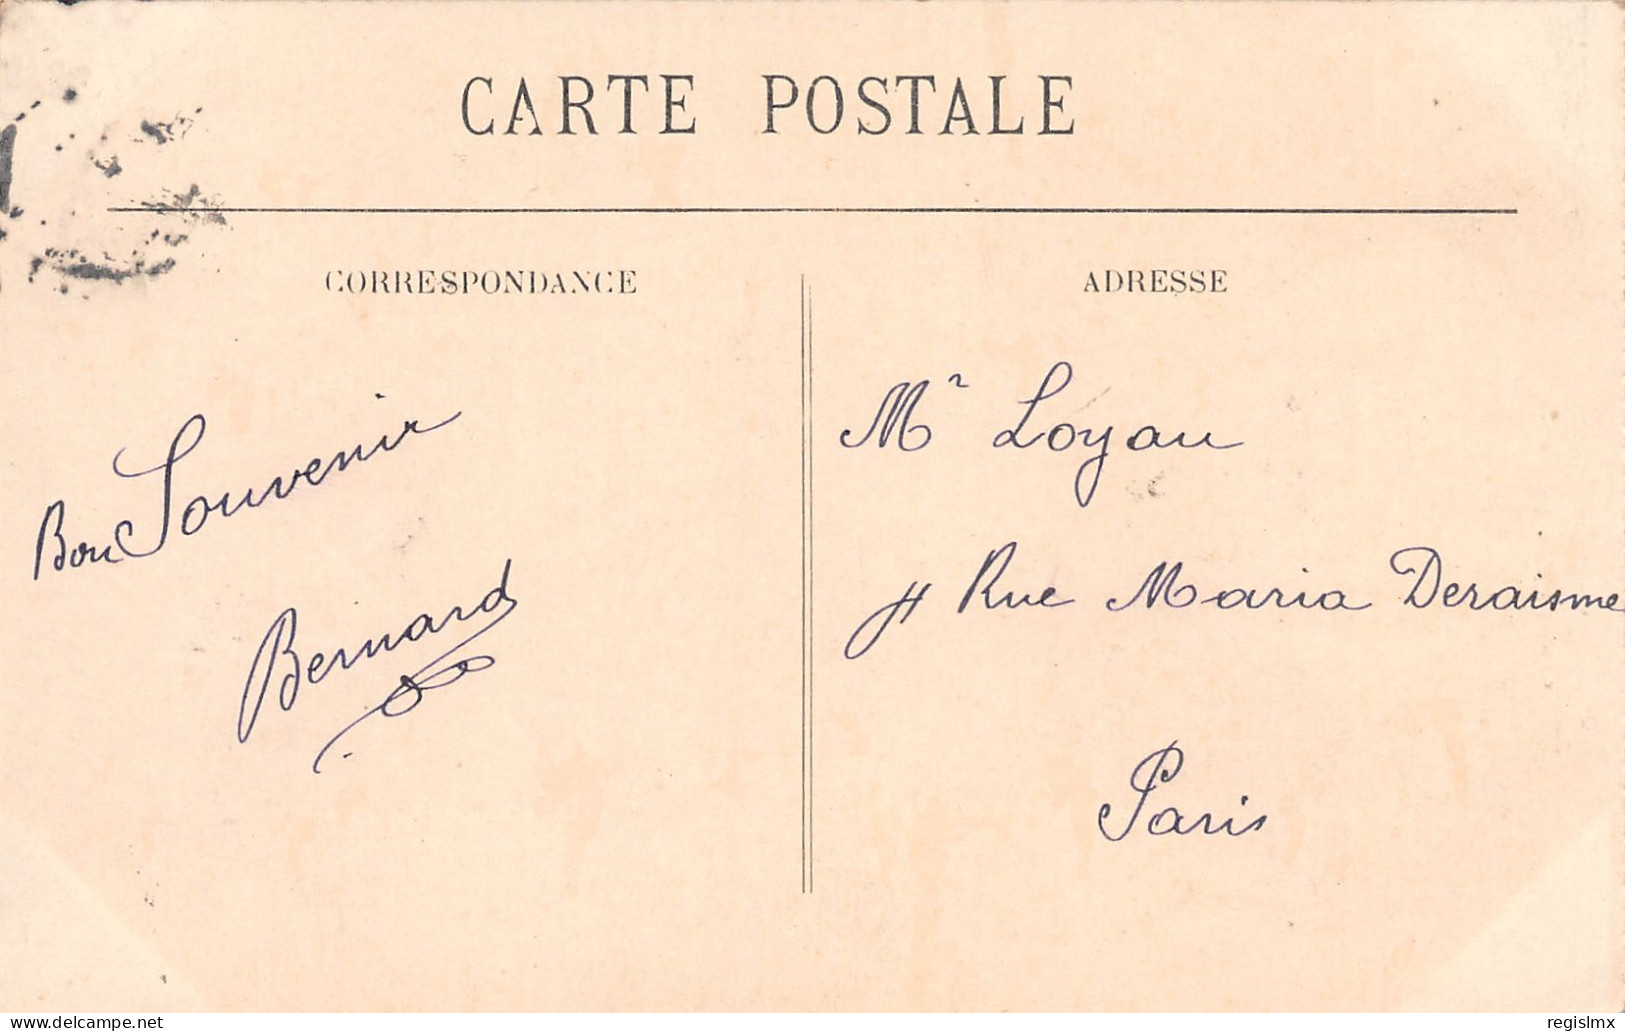 CARTE POSTALE
CORRESPONDANCE
Bon Souvenir
Bernard
ADRESSE
Mr Loyau
4 Rue Maria Deraisme
Paris
www.delcampe.net
regislmx